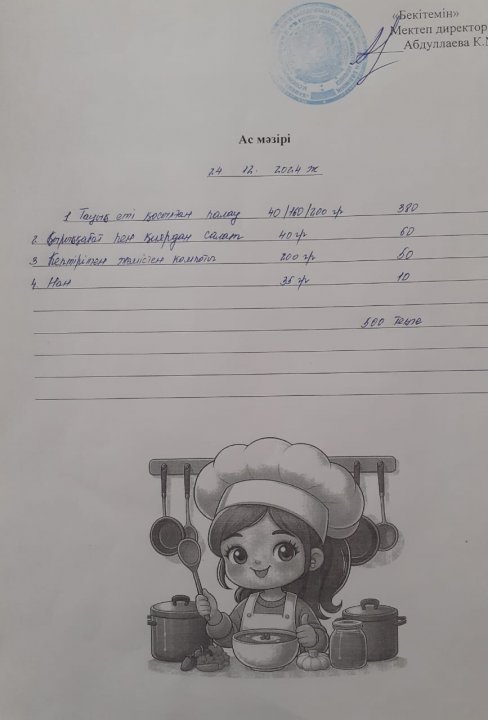 «Бекітемін»
Мектеп директор
Абдуллаева К.
Ас мәзірі
24 12. 2024 ж
1 Тауық еті қосылған палау 40/160/200 гр 380
2. Қырыққабат пен қиярдан салат 40 гр 60
3 Кептірілген жемістен компот 200 гр 50
4. Нан 35 гр 10
500 теңге